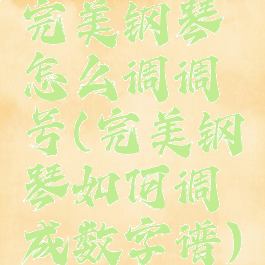 完美钢琴
怎么调调
号(完美钢
琴如何调
成数字谱)